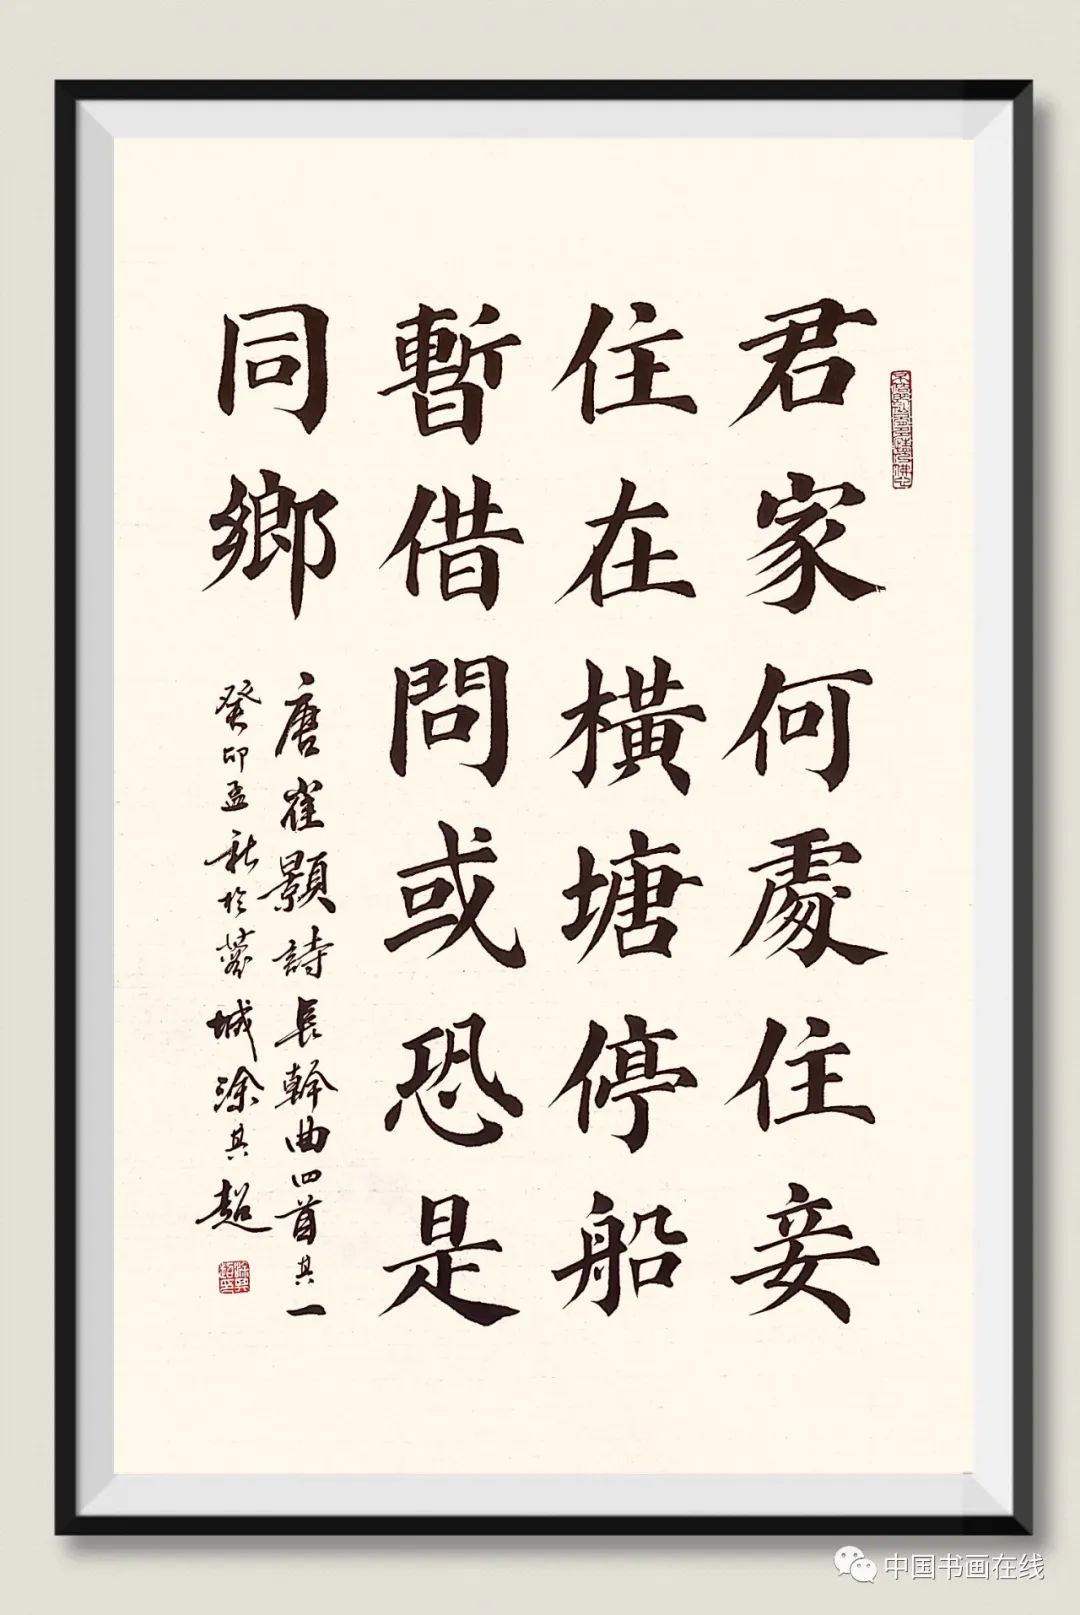 君家何處住妾
住在橫塘停船
暫借問或恐是
同鄉
唐崔顥詩長幹曲四首其一
癸卯孟秋於蓉城涂其超
中国书画在线